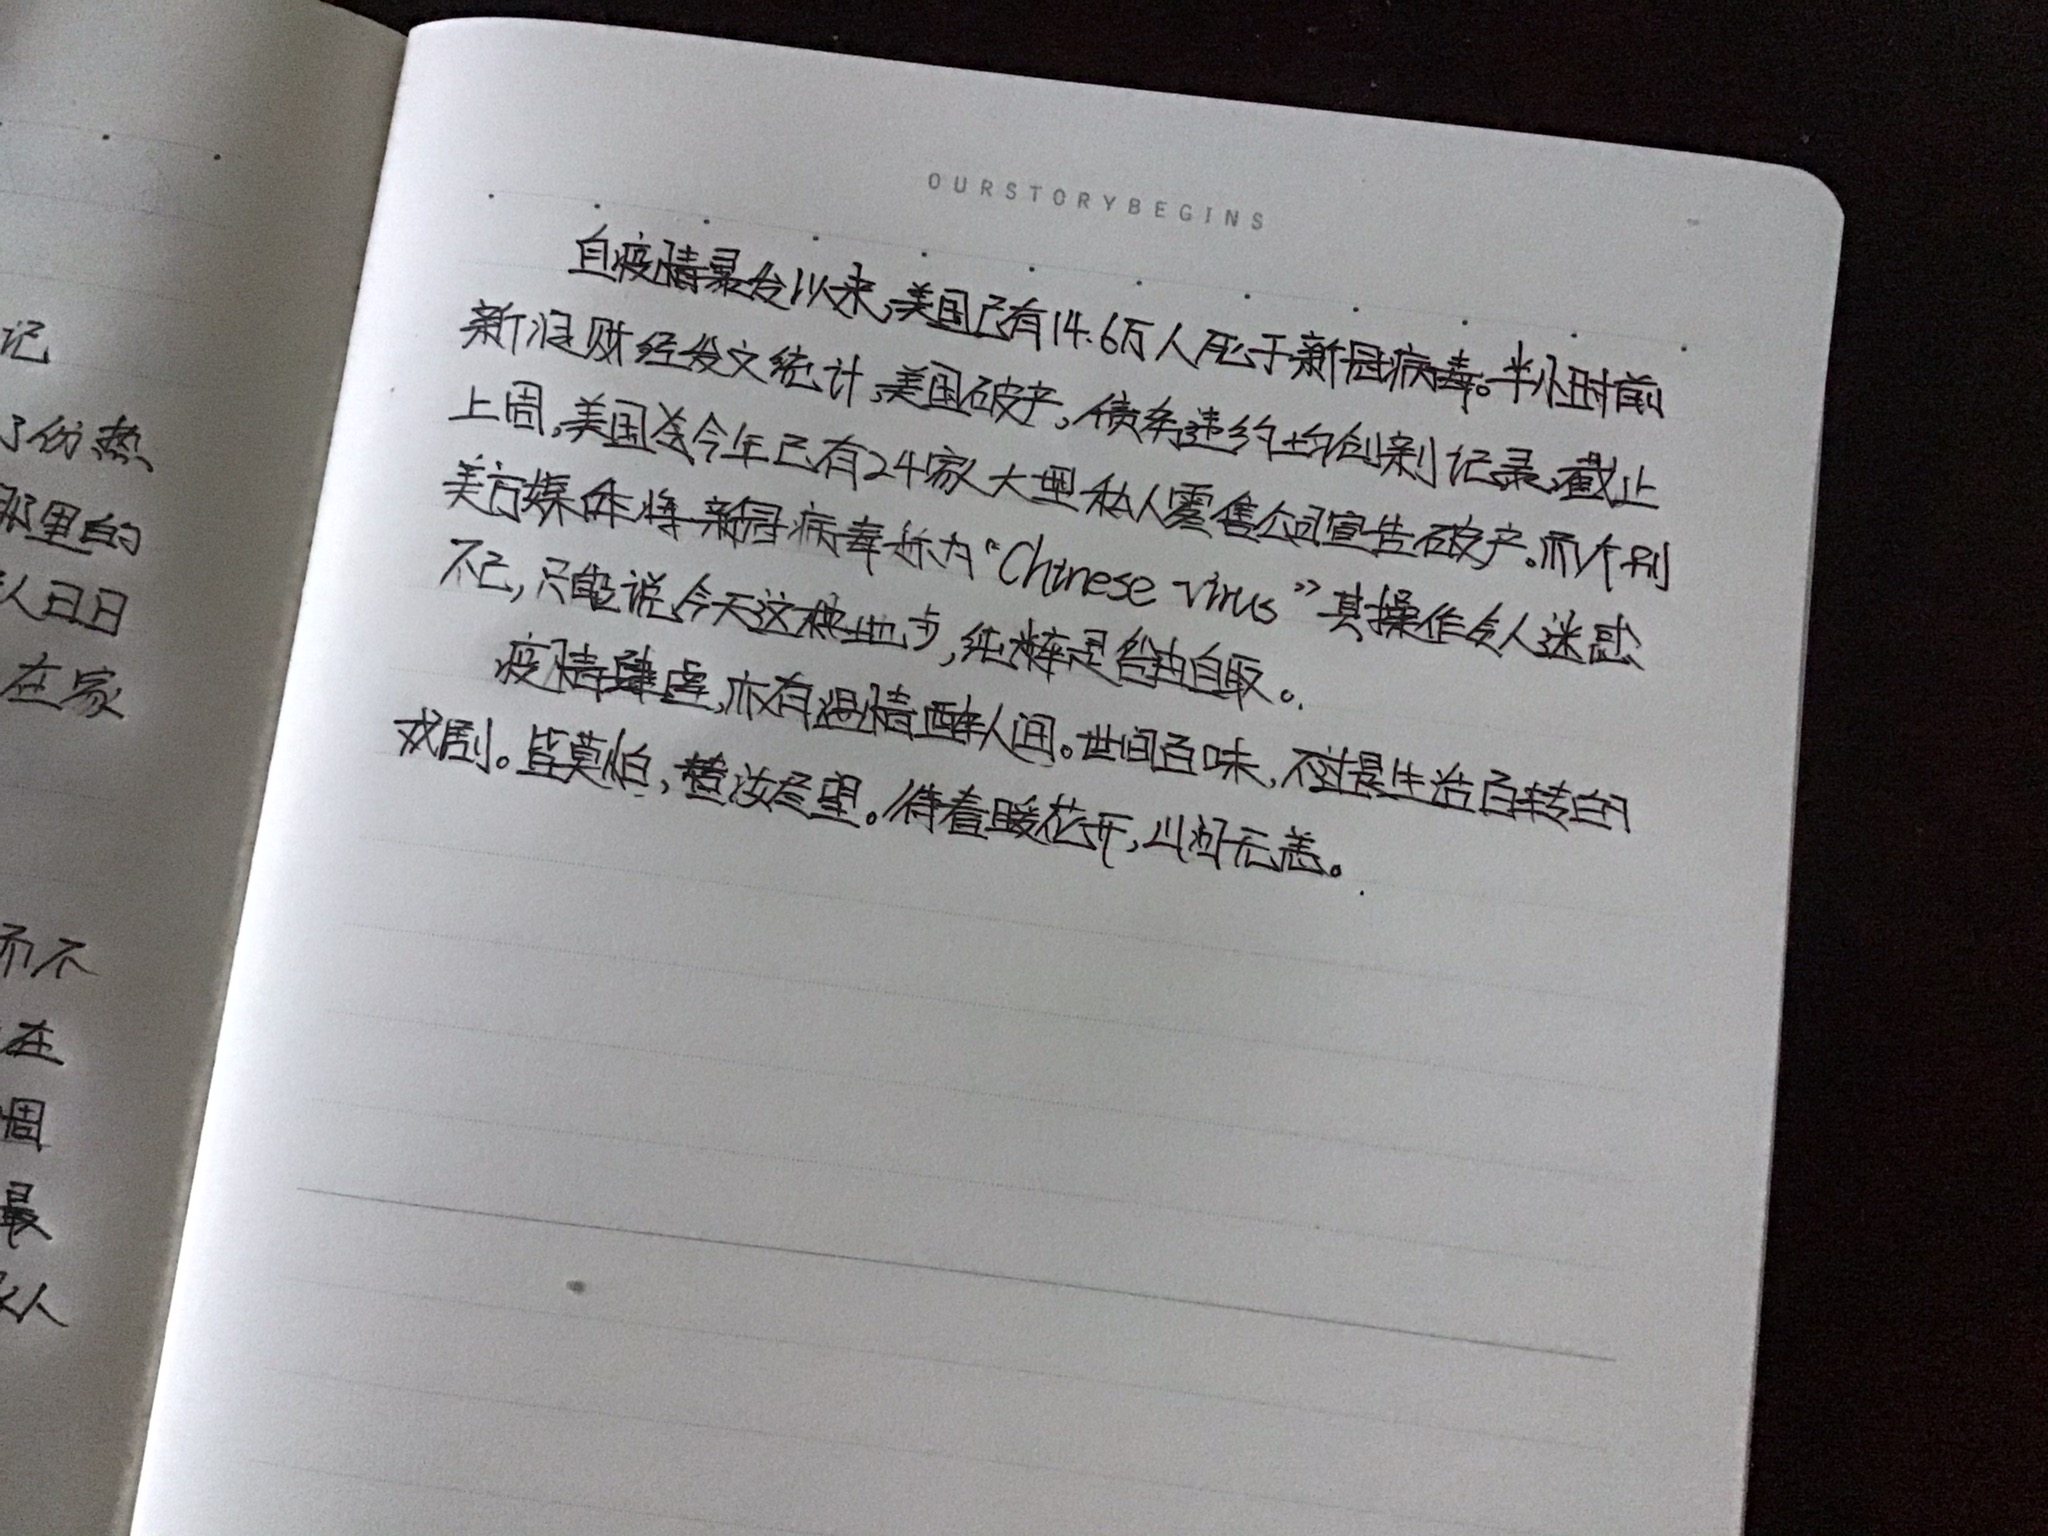 OURSTORYBEGINS
自疫情暴发以来,美国已有14.6万人死于新冠病毒。半小时前
新浪财经发文统计,美国破产,债务违约均创新记录,截止
上周,美国今年已有24家大型私人零售公司宣告破产。而个别
美方媒体将新冠病毒称为“Chinese virus”其操作令人迷惑
不已,只能说今天这种地步,纯粹是咎由自取。
疫情肆虐,亦有温情醉人间。世间百味,不过是生活百转的
戏剧。皆莫怕,莫望。待春暖花开,山河无恙。
记
了份热
那里的
人日日
在家
而不
在
个固
最
人